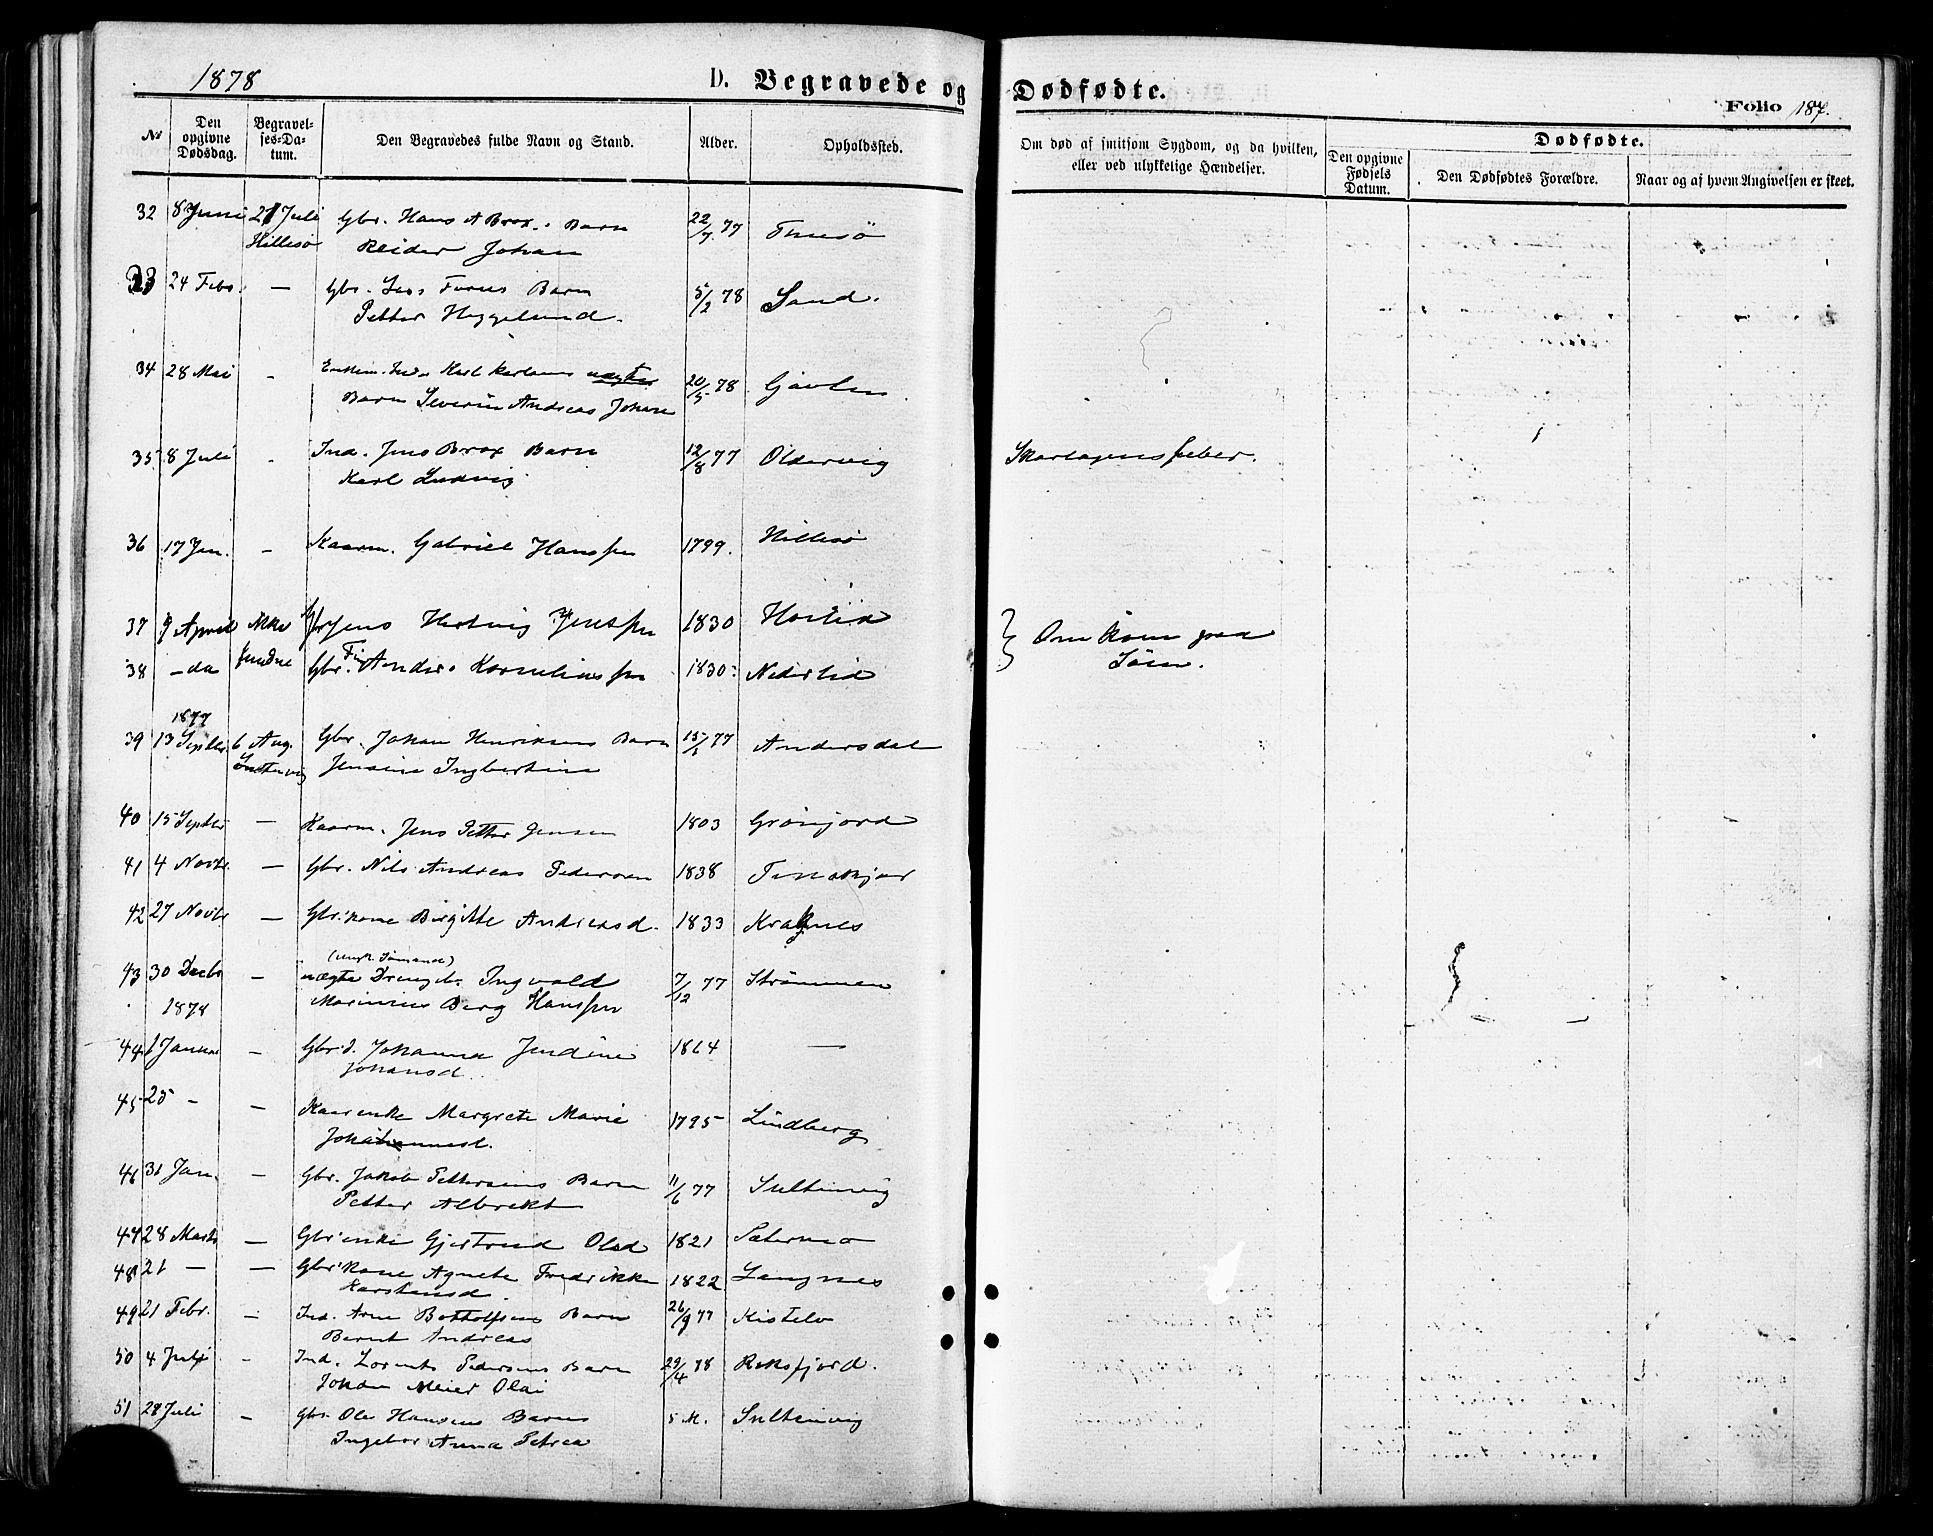 1878
D. Begravede og Dødfødte.
Folio 187.
№
Den opgivne Dødsdag.
Begravelses-Datum.
Den Begravedes fulde Navn og Stand.
Alder.
Opholdssted.
Om død af smitsom Sygdom, og da hvilken, eller ved ulykkelige Hændelser.
Dødfødte.
Den opgivne Fødsels Datum.
Den Dødfødtes Forældre.
Naar og af hvem Angivelsen er skeet.
32 8 Juni 21 Juli Gbr. Hans A Brox. Barn 22/7 77
Hillesø Reider Johan
33 24 Febr. — Gbr. Barn 5/2 78 Sand.
Petter Heggelund.
34 28 Mai - Karl uægte 20/5 78
Barn Severin Andreas Johan
35 8 Juli - Ind. Jens Brox Barn 12/8 77 Oldervig Skarlagensfeber.
Karl Ludvig
36 17 Jan. - Kaarm. Gabriel Hanssen 1799. Hillesø
37 9 April Ikke Jens Hertvig Jenssen 1830 Om kom paa
38 - do fundne Gbr. Anders Korneliussen 1830 Nederlid Søen.
1877
39 13 Septbr 6 Aug. Gbr. Johan Henriksens Barn 77 Andersdal
Jensine Ingbertine
40 15 Septbr — Kaarm. Jens Petter Jensen 1803 Grønjord
41 4 Novbr. — Gbr. Nils Andreas Pedersen 1838 Tennskjær
42 27 Novbr — Gbr.kone Birgitte Andreasd. 1833 Kraknes
43 30 Decbr — uægte Drengeb. Ingvald 7/12 77 Strømmen
1878 Marinius Berg Hanssen
44 6 Januar — Gbr.d. Johanna Jendine 1864 —
Johansd.
45 25 - — Kaarenke Margrete Marie 1795 Lindberg
Johannesd.
46 31 Jan. — Gbr. Jakob Pettersens Barn 11/6 77 Sultenvig
Petter Albrekt
47 28 Marts — Gbr.enke Gjertrud Olsd 1821 Sætermo
48 21 — — Gbr.kone Agnete Fredrikke 1822 Langnes
Karstensd.
49 21 Febr. — Ind. Arne Bottolfsens Barn 26/9 77 Kistelv
Bernt Andreas
50 4 Juli - Ind. Lorents Pedersens Barn 29/4 78 Reksfjord.
Johan Meier Olai
51 28 Juli — Gbr. Ole Hansens Barn 5 M. Sultenvig
Ingebor Anna Petrea